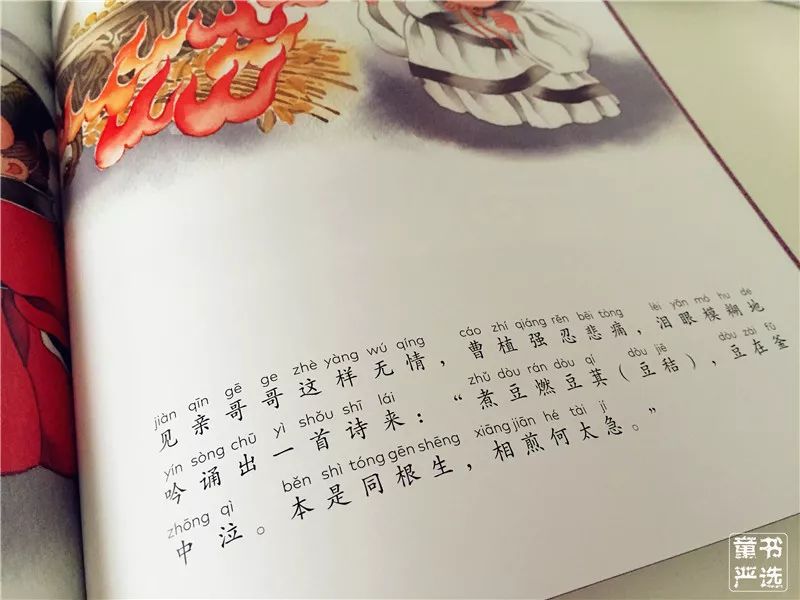 jiàn qīn gē ge zhè yàng wú qíng cáo zhí qiáng rěn bēi tòng lèi yǎn mó hu de
见亲哥哥这样无情，曹植强忍悲痛，泪眼模糊地
yín sòng chū yì shǒu shī lái zhǔ dòu rán dòu qí dòu jiē dòu zài fǔ
吟诵出一首诗来：“煮豆燃豆萁（豆秸），豆在釜
zhōng qì běn shì tóng gēn shēng xiāng jiān hé tài jí
中泣。本是同根生，相煎何太急。”
童书
严选